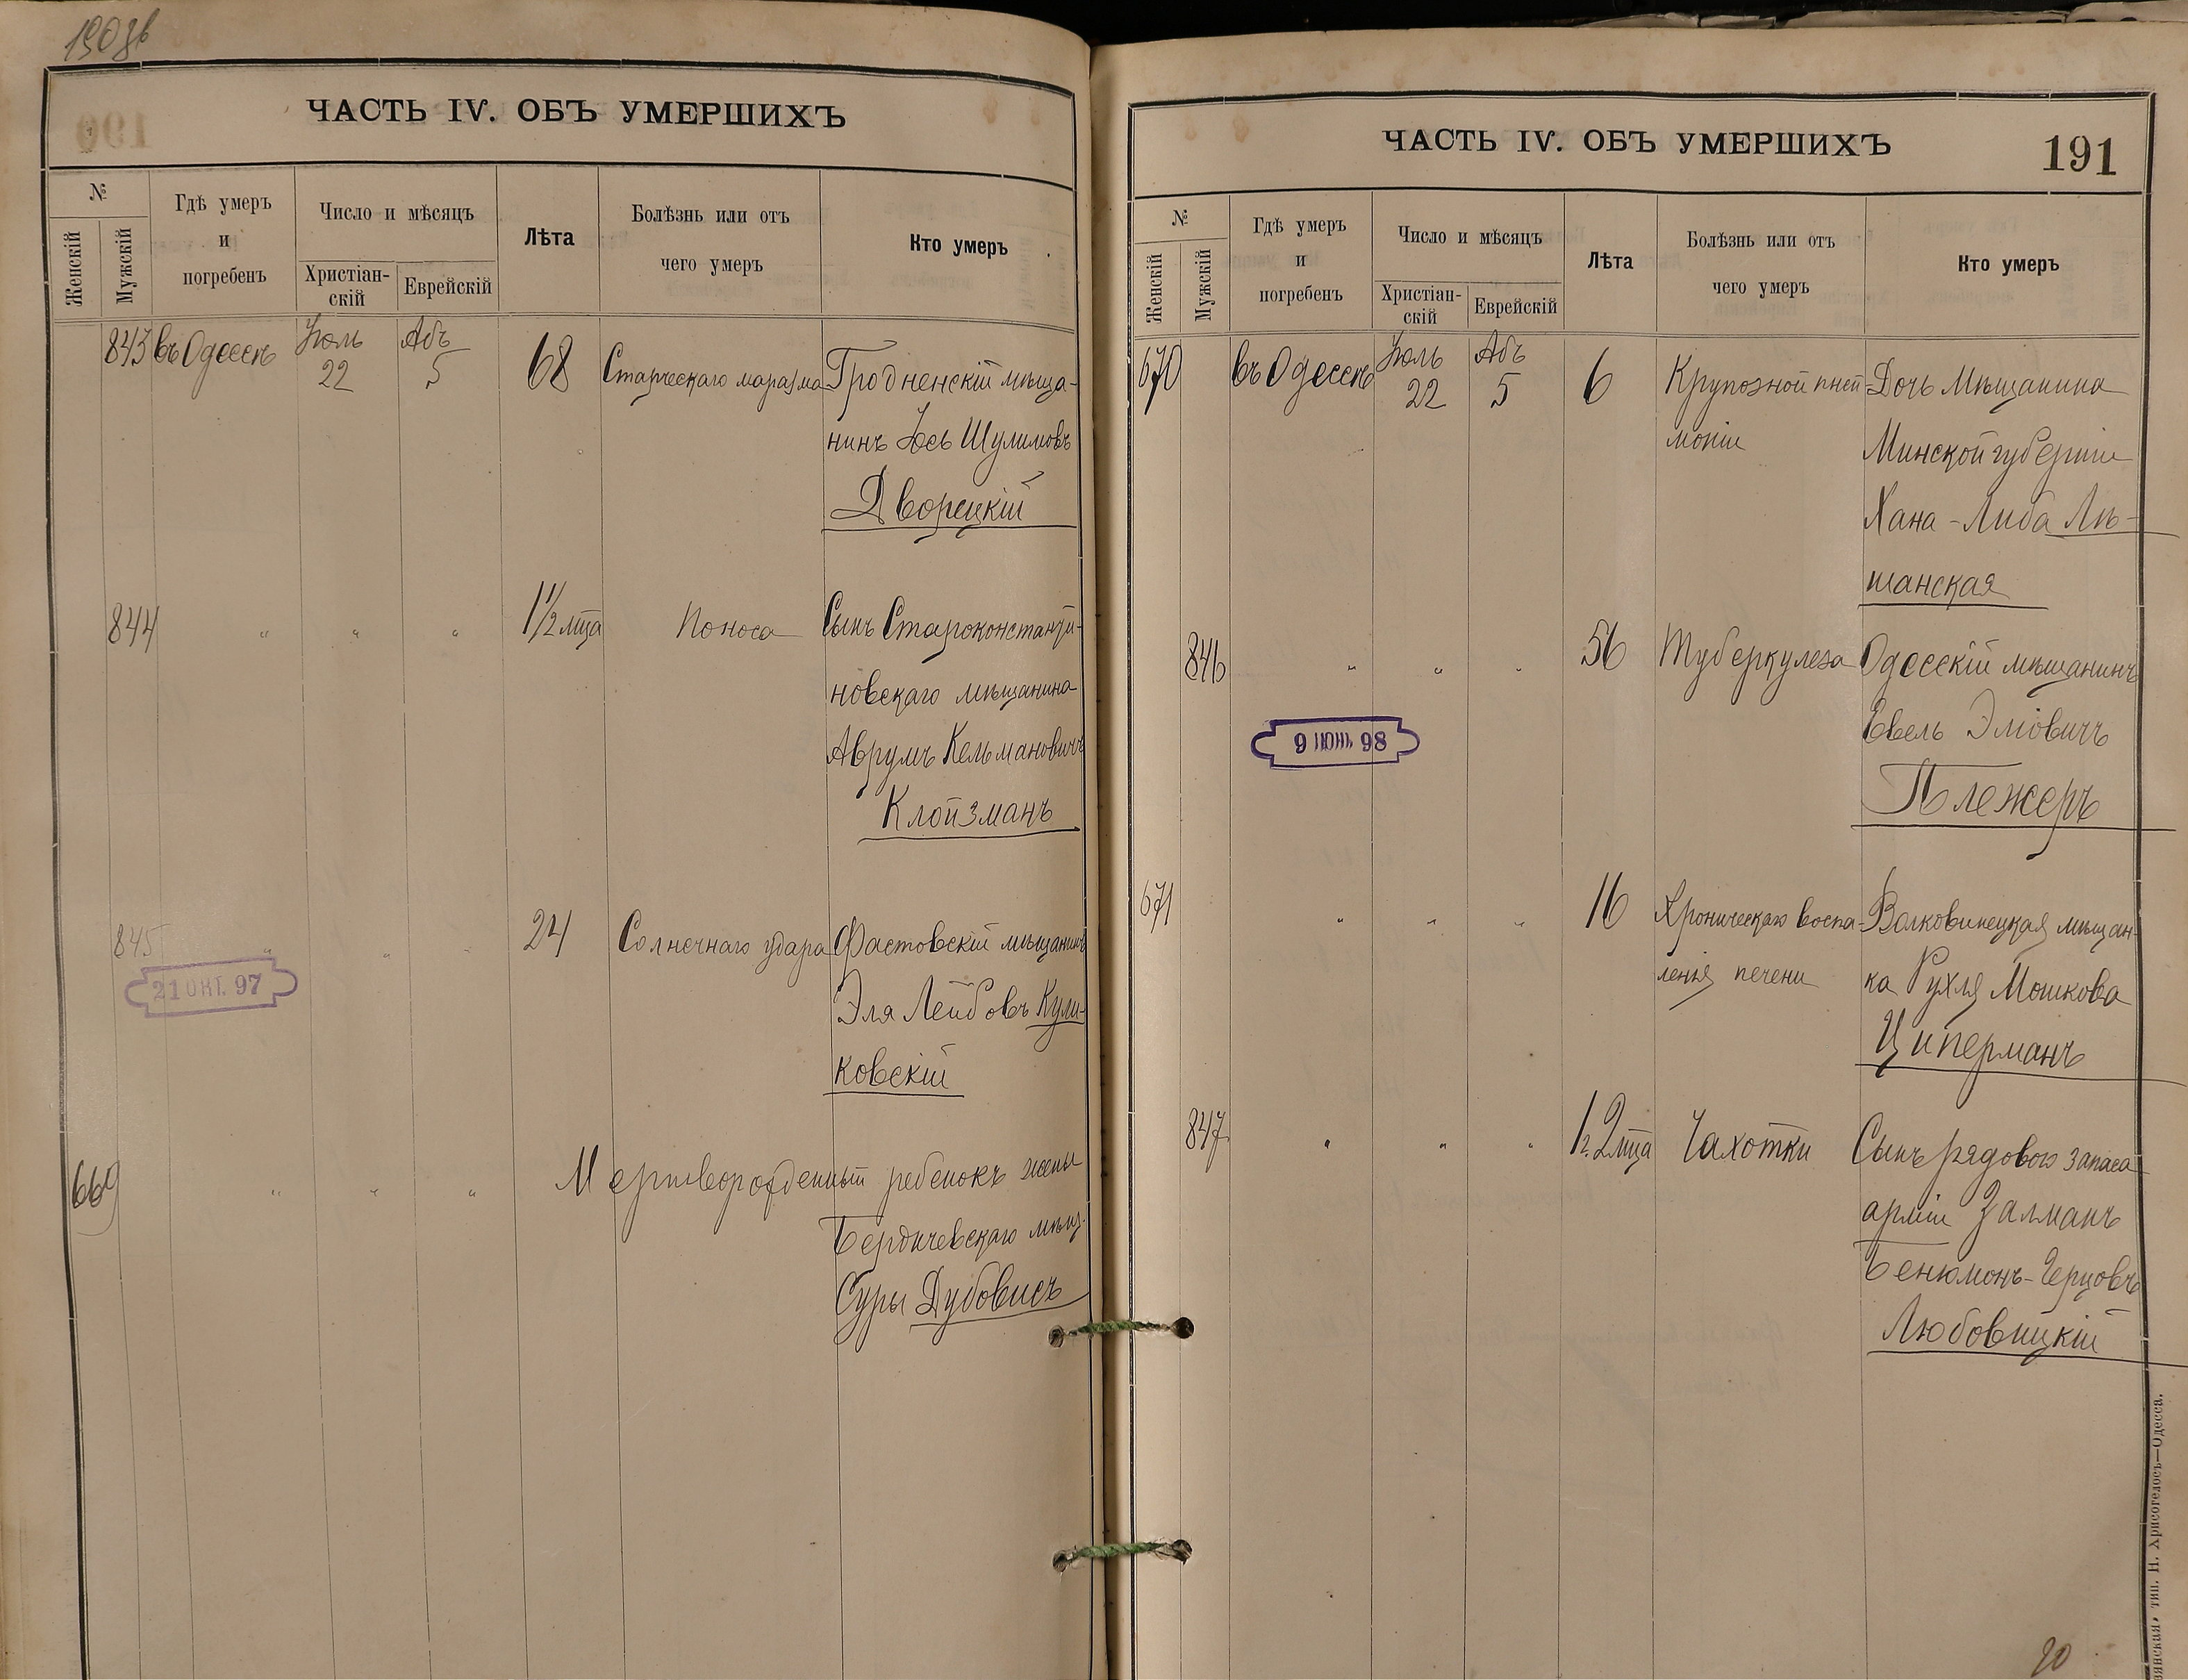 190 об
ЧАСТЬ IV. ОБЪ УМЕРШИХЪ
№
Женскій
Мужскій
Гдѣ умеръ
и
погребенъ
Число и мѣсяцъ
Христіан-
скій
Еврейскій
Лѣта
Болѣзнь или отъ
чего умеръ
Кто умеръ
843 въ Одессѣ Іюль 22 Абъ 5 68 Старческаго маразма Гродненскій мѣща-
нинъ Іось Шулимовъ
Дворецкій
844 " " " 1 1/2 мца Поноса Сынъ Староконстанти-
новскаго мѣщанина
Аврумъ Кельмановичъ
Клойзманъ
845 " " " 24 Солнечнаго удара Фастовскій мѣщанинъ
21 ОКТ. 97
Эля Лейбовъ Кули-
ковскій
669 " " " Мертворожденный ребенокъ жены
Бердичевскаго мѣщ.
Суры Дубовисъ
ЧАСТЬ IV. ОБЪ УМЕРШИХЪ
191
№
Женскій
Мужскій
Гдѣ умеръ
и
погребенъ
Число и мѣсяцъ
Христіан-
скій
Еврейскій
Лѣта
Болѣзнь или отъ
чего умеръ
Кто умеръ
670 въ Одессѣ Іюль 22 Абъ 5 6 Крупозной пней- Дочь Мѣщанина
моніи Минской губерніи
Хана-Либа Лѣ-
щанская
846 " " " 56 Туберкулеза Одесскій мѣщанинъ
9 ІЮН. 98
Евель Эліовичъ
Плежеръ
671 " " " 16 Хроническаго воспа- Волковинецкая мѣщан-
ленія печени ка Рухля Мошкова
Циперманъ
847 " " " 1 г. 2 мца Чахотки Сынъ рядового запаса
арміи Залманъ
Бенюмонъ-Герцовъ
Любовицкій
тип. Н. Хрисогелосъ—Одесса.
20